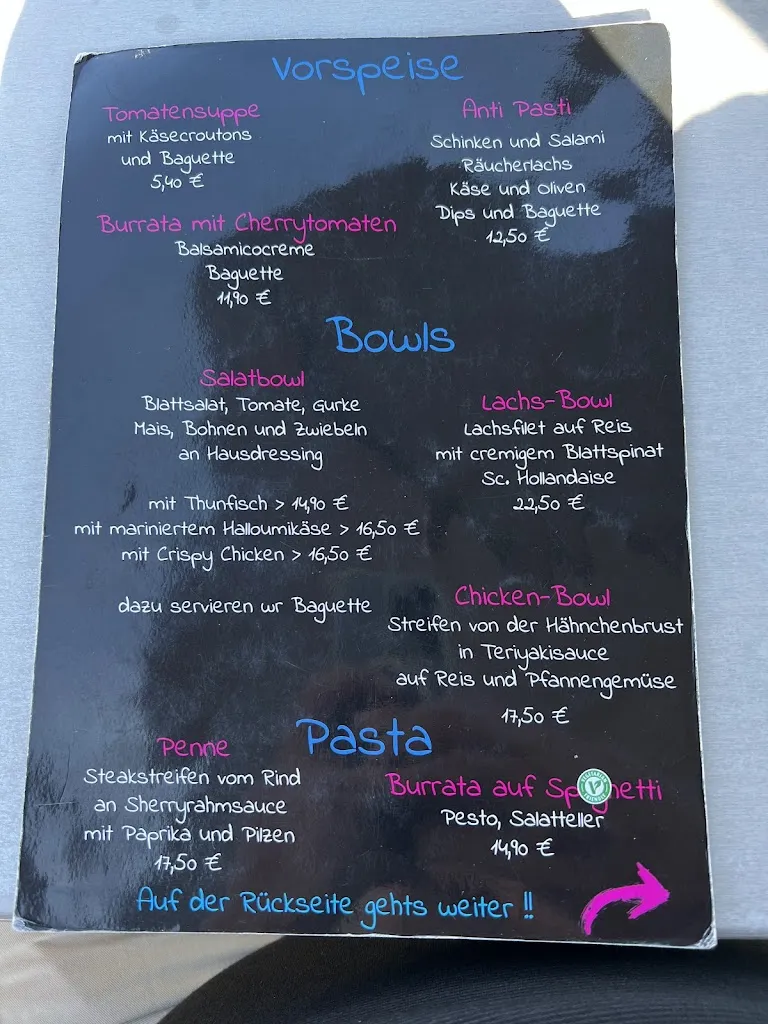 Vorspeise
Tomatensuppe
mit Käsecroutons
und Baguette
5,40 €
Anti Pasti
Schinken und Salami
Räucherlachs
Käse und Oliven
Dips und Baguette
12,50 €
Burrata mit Cherrytomaten
Balsamicocreme
Baguette
11,90 €
Bowls
Salatbowl
Blattsalat, Tomate, Gurke
Mais, Bohnen und Zwiebeln
an Hausdressing
mit Thunfisch > 14,90 €
mit mariniertem Halloumikäse > 16,50 €
mit Crispy Chicken > 16,50 €
dazu servieren wr Baguette
Lachs-Bowl
Lachsfilet auf Reis
mit cremigem Blattspinat
Sc. Hollandaise
22,50 €
Chicken-Bowl
Streifen von der Hähnchenbrust
in Teriyakisauce
auf Reis und Pfannengemüse
17,50 €
Pasta
Penne
Steakstreifen vom Rind
an Sherryrahmsauce
mit Paprika und Pilzen
17,50 €
Burrata auf Spaghetti
Pesto, Salatteller
14,90 €
Auf der Rückseite gehts weiter !!